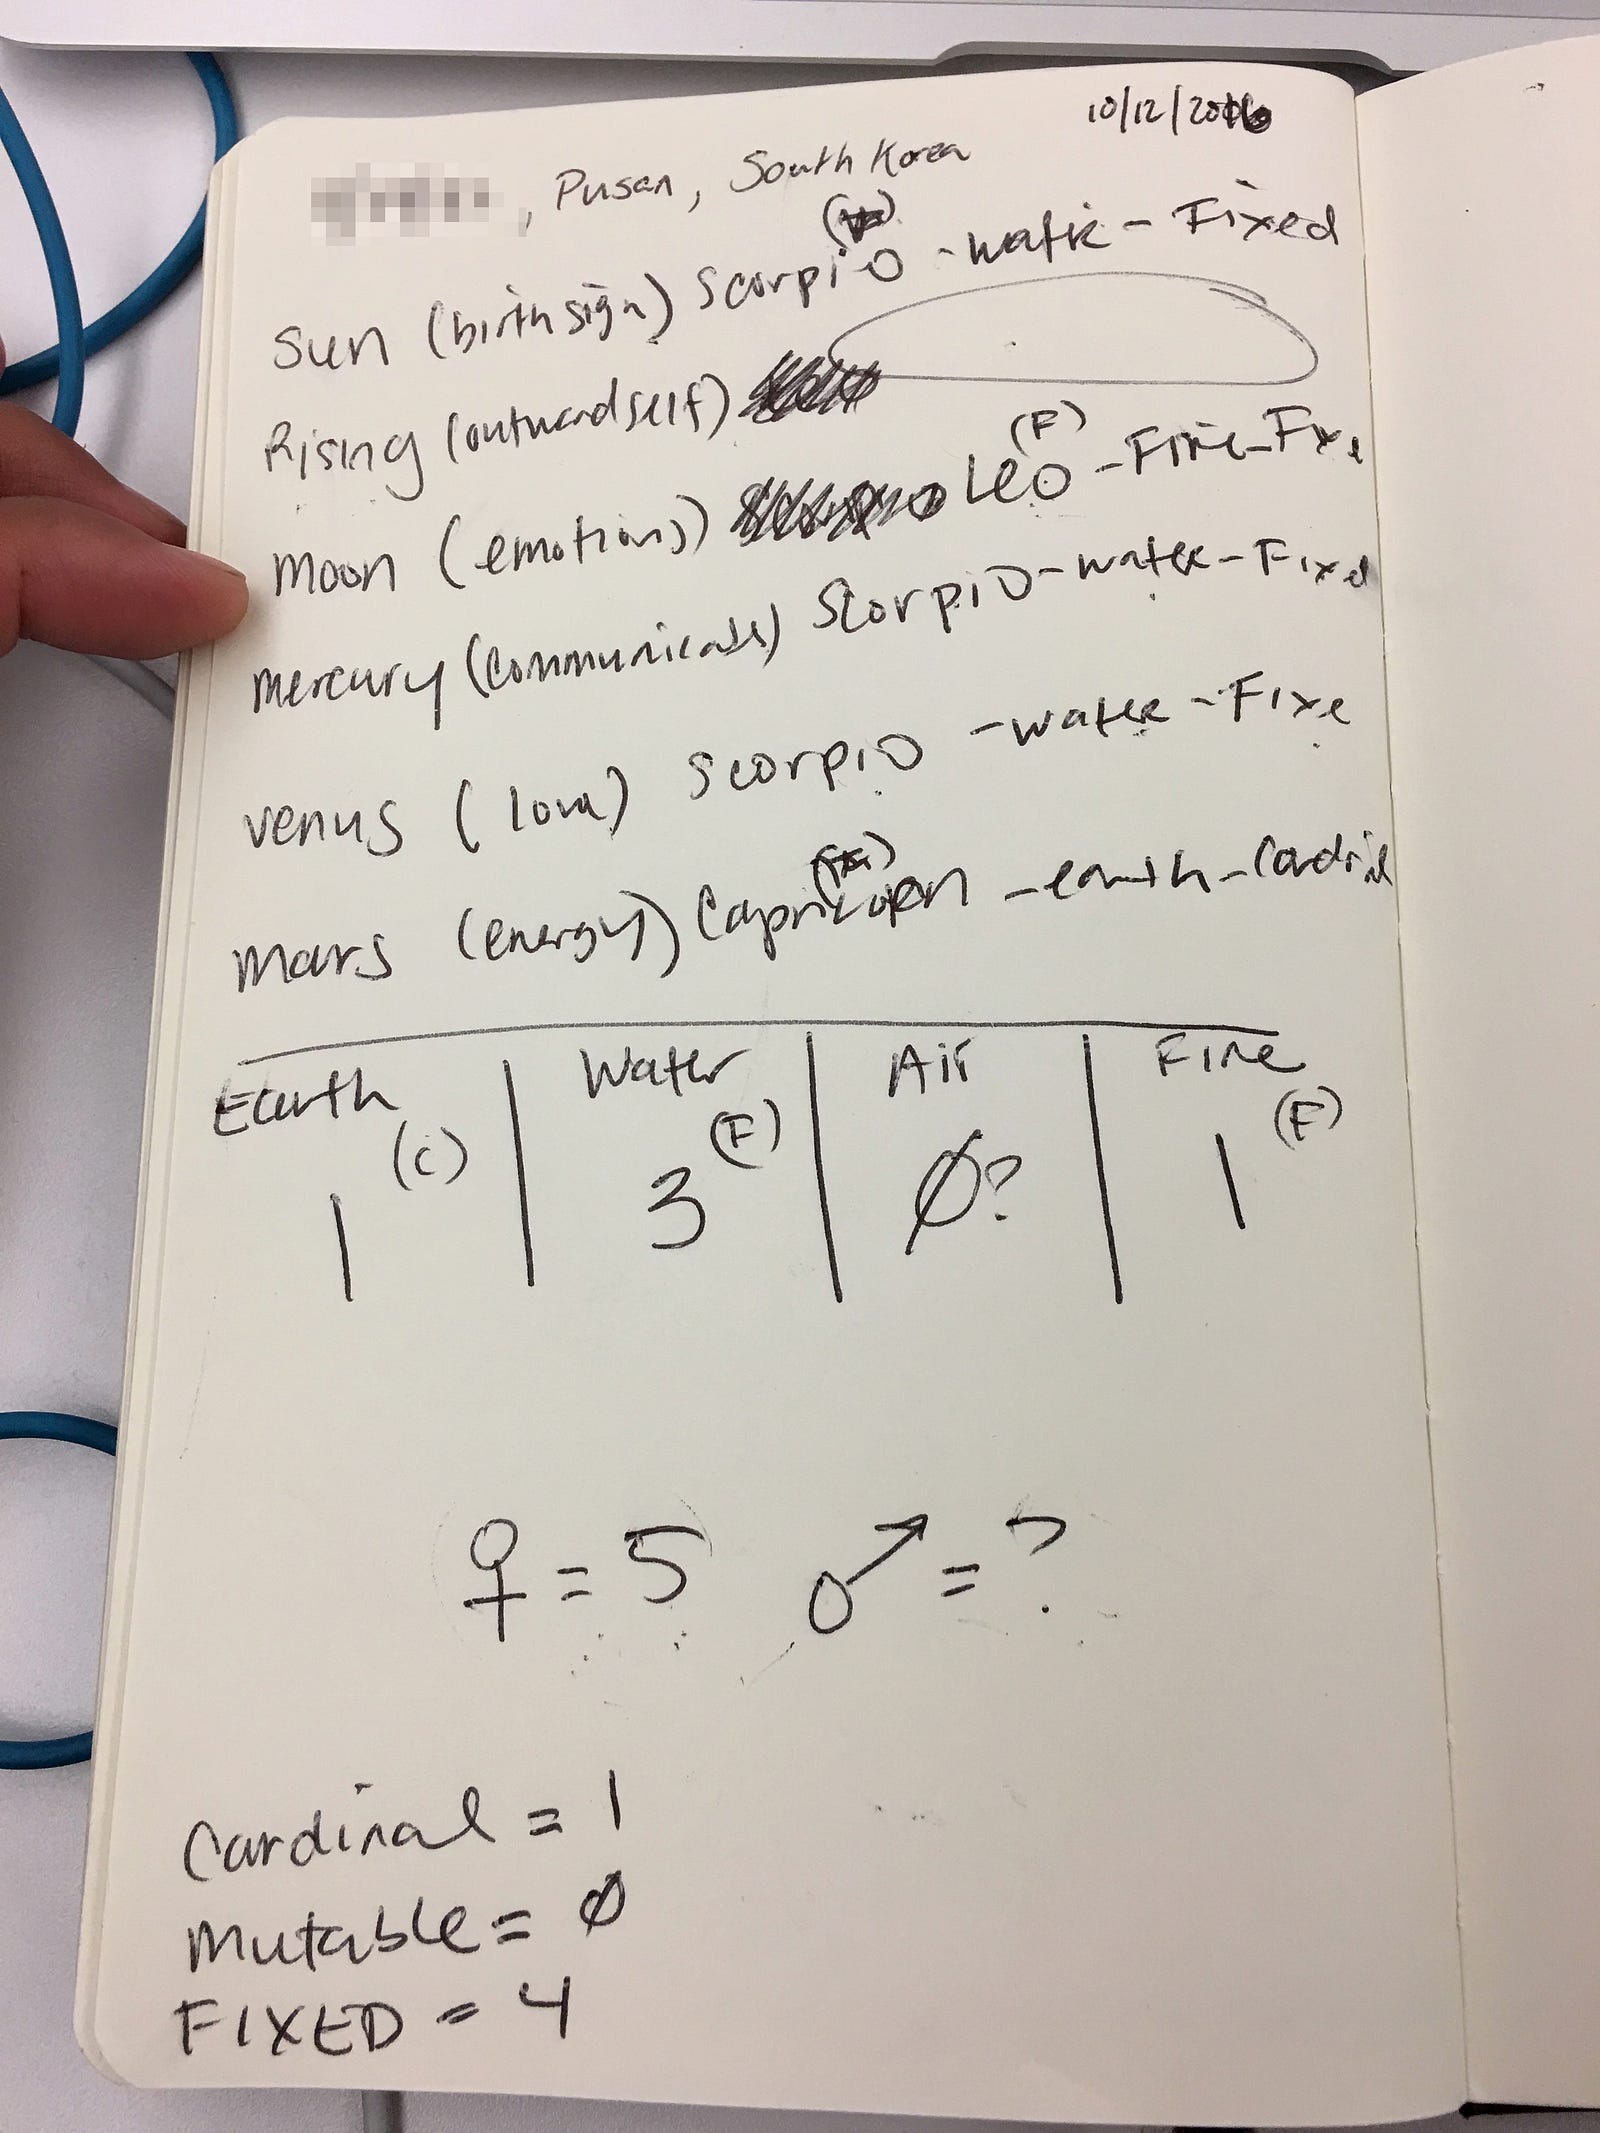 10/12/2016
, Pusan, South Korea
Sun (birthsign) Scorpio - water - Fixed
Rising (outwardself)
(F)
Moon (emotions) Leo - Fire - Fixe
Mercury (communicate) Scorpio - water - Fixed
Venus (love) Scorpio - water - Fixe
Mars (energy) Capricorn - earth - Cardinal
Earth | Water | Air | Fire
1 (C) | 3 (F) | Ø? | 1 (F)
♀ = 5 ♂ = ?
Cardinal = 1
Mutable = Ø
FIXED = 4